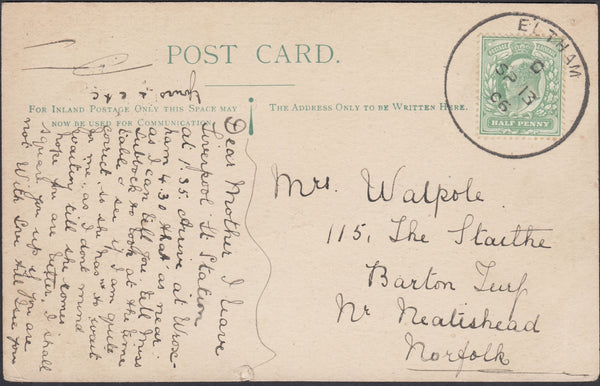 POST CARD.
FOR INLAND POSTAGE ONLY THIS SPACE MAY
NOW BE USED FOR COMMUNICATION.
THE ADDRESS ONLY TO BE WRITTEN HERE.
ELTHAM
C
SP 13
06
HALF PENNY
Dear Mother I leave
Liverpool St Station
at 1.35. Arrive at Wrox-
ham 4.30 that as near
as I can tell you tell Miss
Lubbock to look at the time
table & see if I am quite
correct. is she has to wait
for me. as I dont mind
waiting till she comes
hope you are better. I shall
square you up if you are
not With Love till I see you
Yours
Mrs. Walpole.
115, The Staithe
Barton Turf
Nr Neatishead
Norfolk